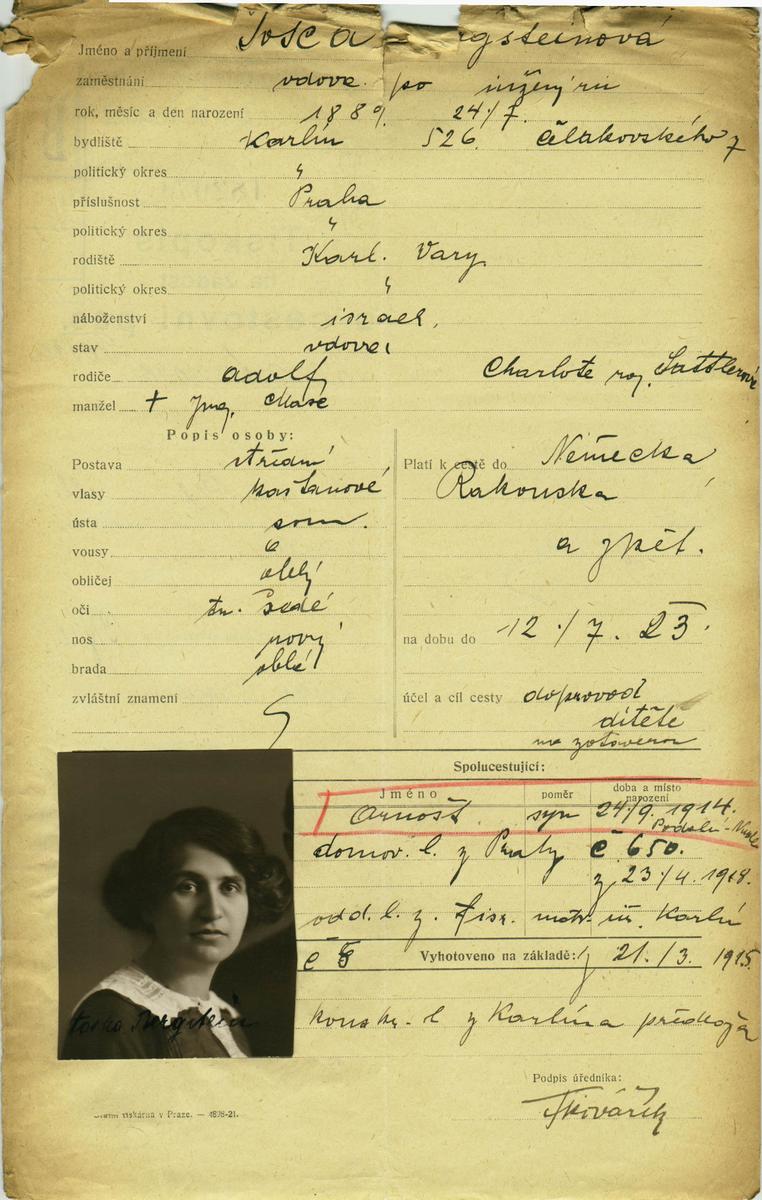 Jméno a příjmení Tosca
zaměstnání vdova po inženýru
rok, měsíc a den narození 188 24/7.
bydliště Karlín 526. Čelakovského 7
politický okres "
příslušnost Praha
politický okres "
rodiště Karl. Vary
politický okres "
náboženství israel.
stav vdova
rodiče Adolf Charlote roz. Sattlerové
manžel + Ing.
Popis osoby:
Postava střední
vlasy kaštanové
ústa soum.
vousy
obličej oblý
oči tm. šedé
nos rovný
brada oblá
zvláštní znamení
Platí k cestě do Německa
Rakouska
a zpět.
na dobu do 12./7. 23.
účel a cíl cesty doprovod
dítěte
na zotavenou
Spolucestující:
Jméno poměr doba a místo narození
Arnošt syn 24/9. 1914.
Podolí-Nusle
domov. l. z Prahy č 650.
z 23./4. 1918.
odd. l. z. isr. matr. úř. Karlín
č 8 Vyhotoveno na základě: z 21./3. 1915
konskr. l z Karlína
Toska Bergstein
Podpis úředníka:
Státní tiskárna v Praze. — 4898-21.